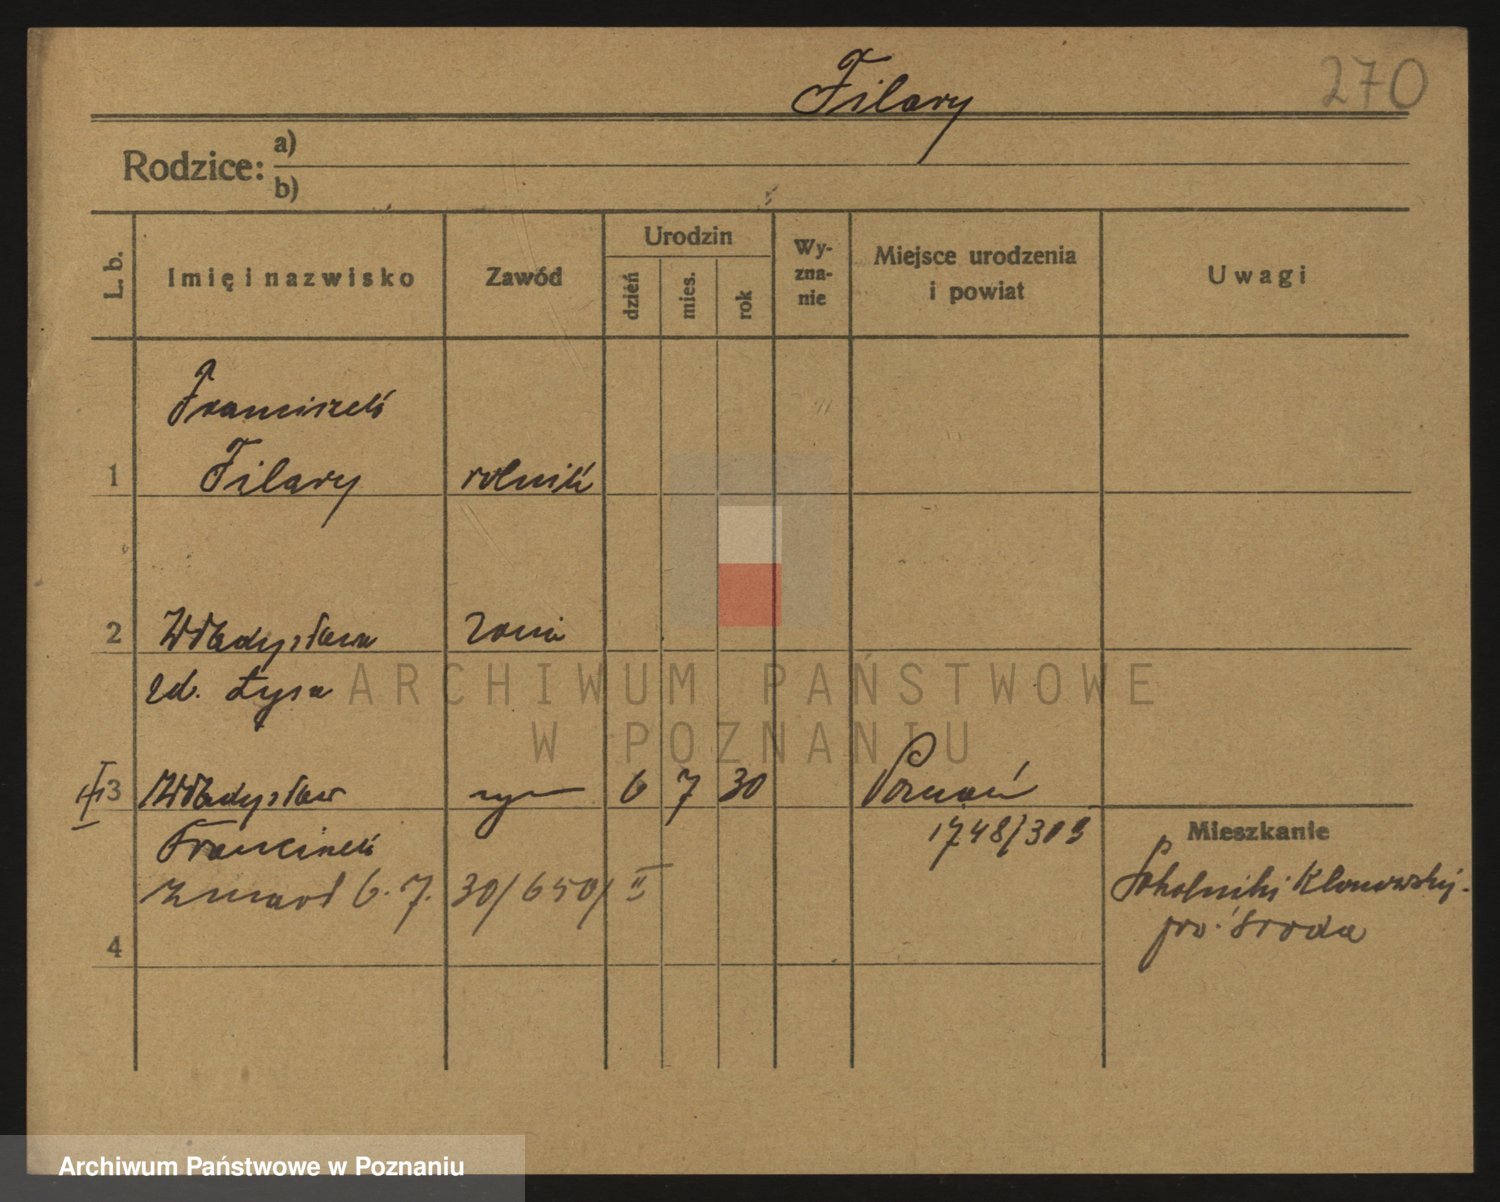 Filary 270
Rodzice: a)
b)
L. b. Imię i nazwisko Zawód Urodzin dzień mies. rok Wy-zna-nie Miejsce urodzenia i powiat Uwagi
Franciszek
1 Filary rolnik
2 Władysława żona
zd. Łysa
ARCHIWUM PAŃSTWOWE
W POZNANIU
3 Władysław syn 6 7 30 Poznań
Franciszek 1748/309 Mieszkanie
zmarł 6.7. 30/650/II Klonowskij.
4 pow. Środa
Archiwum Państwowe w Poznaniu